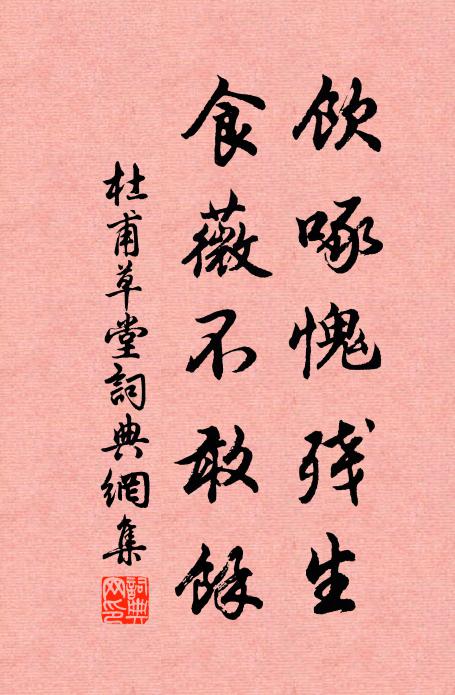 飲啄愧残生
食薇不敢餘
杜甫草堂詞典網集
詞典
网印